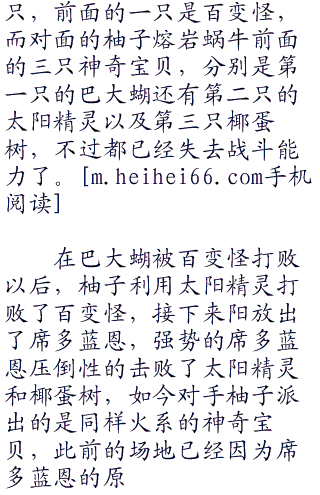 只，前面的一只是百变怪，
而对面的柚子熔岩蜗牛前面
的三只神奇宝贝，分别是第
一只的巴大蝴还有第二只的
太阳精灵以及第三只椰蛋
树，不过都已经失去战斗能
力了。[m.heihei66.com手机
阅读]
在巴大蝴被百变怪打败
以后，柚子利用太阳精灵打
败了百变怪，接下来阳放出
了席多蓝恩，强势的席多蓝
恩压倒性的击败了太阳精灵
和椰蛋树，如今对手柚子派
出的是同样火系的神奇宝
贝，此前的场地已经因为席
多蓝恩的原